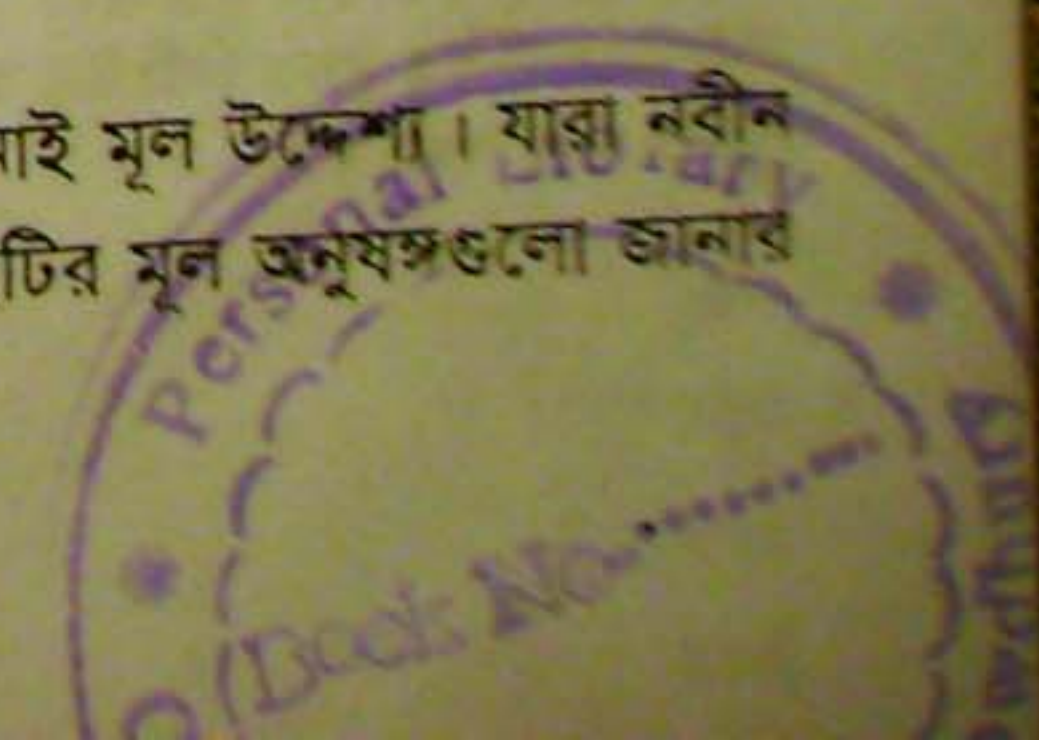 মূল উদ্দেশ্য। যারা নবীন
টির মূল অনুষঙ্গগুলো জানার
Personal Library
Book No..........